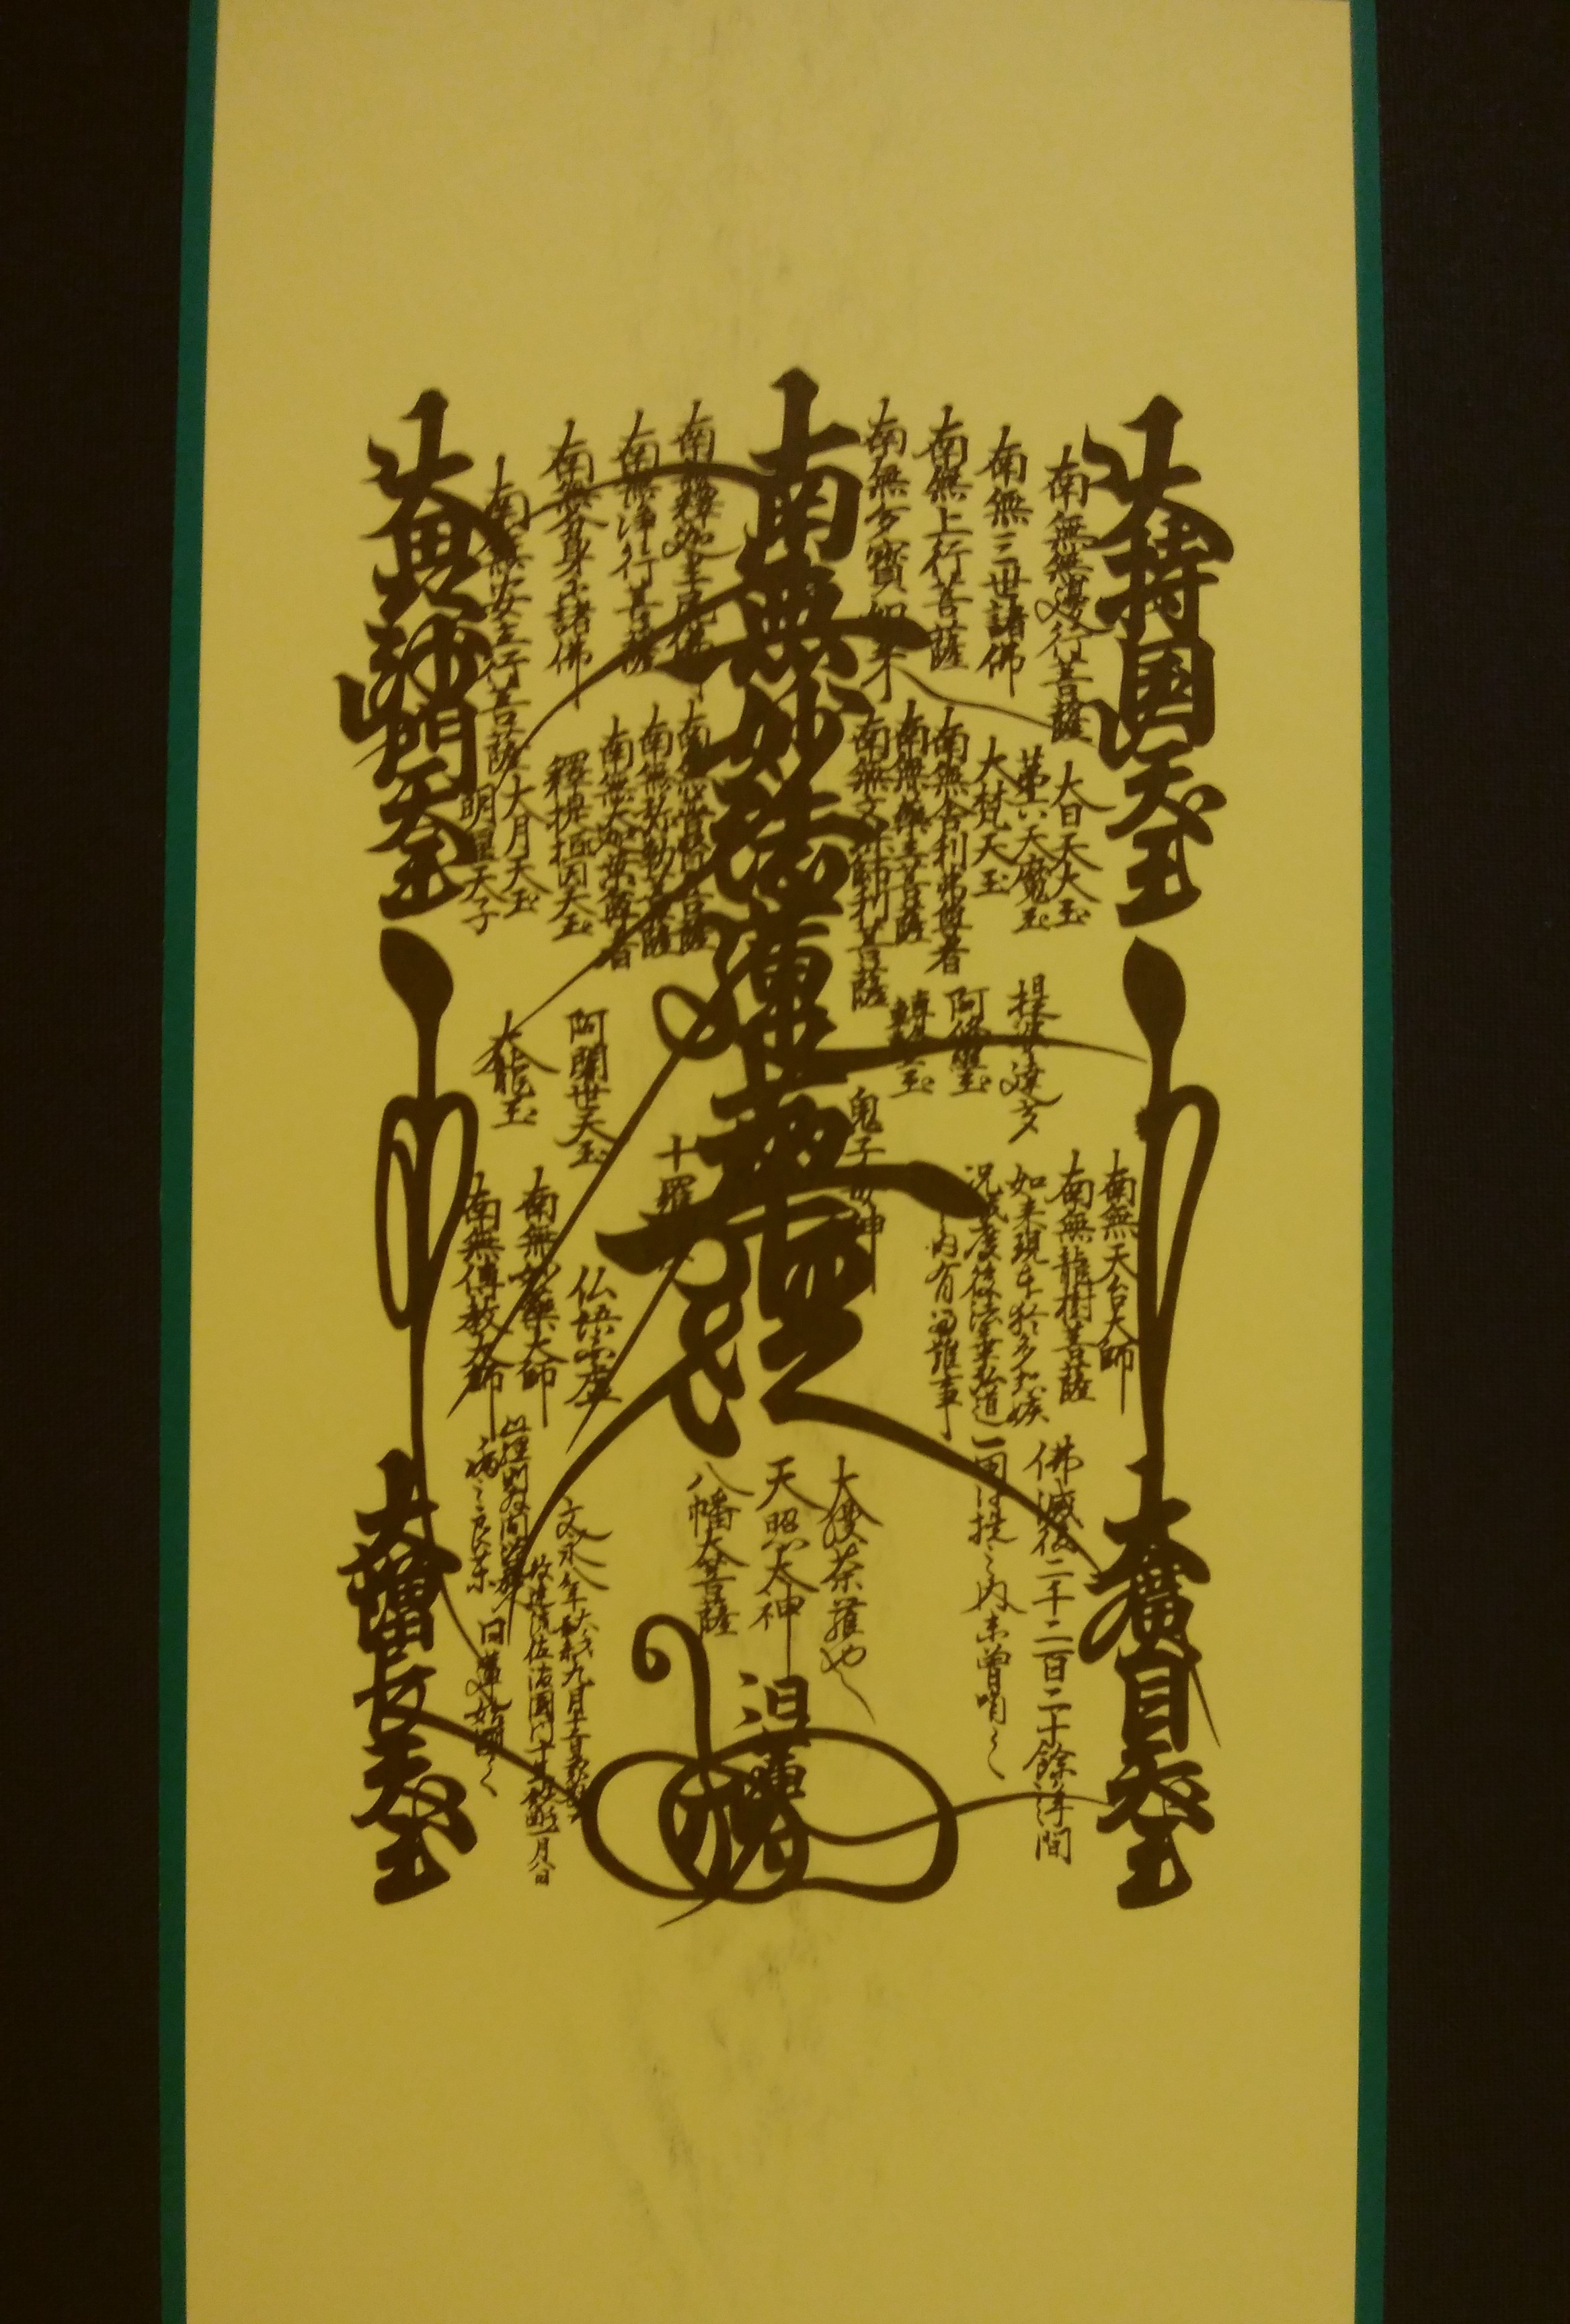 大持国天王
南無無邊行菩薩
南無三世諸佛
南無上行菩薩
南無多寶如来
南無妙法蓮華經
南無釋迦牟尼佛
南無浄行菩薩
南無分身等諸佛
南無安立行菩薩
大毘沙門天王
大日天大王
第六天魔王
大梵天王
南無舎利弗尊者
南無藥王菩薩
南無文殊師利菩薩
南無普賢菩薩
南無弥勒菩薩
南無大迦葉尊者
釋提桓因天王
大月天王
明星天子
提婆達多
阿修羅王
轉輪王
鬼子母神
十羅
阿闍世大王
大龍王
南無天台大師
南無龍樹菩薩
如来現在猶多怨嫉
況滅度後法華弘道
内有留難事
仏語不虚
南無妙樂大師
南無傳教大師
大廣目天王
佛滅後二千二百二十餘年間
一閻浮提之内未曾有
大
天照大神
八幡大菩薩
日蓮
文永
病之良薬
日蓮
大増長天王